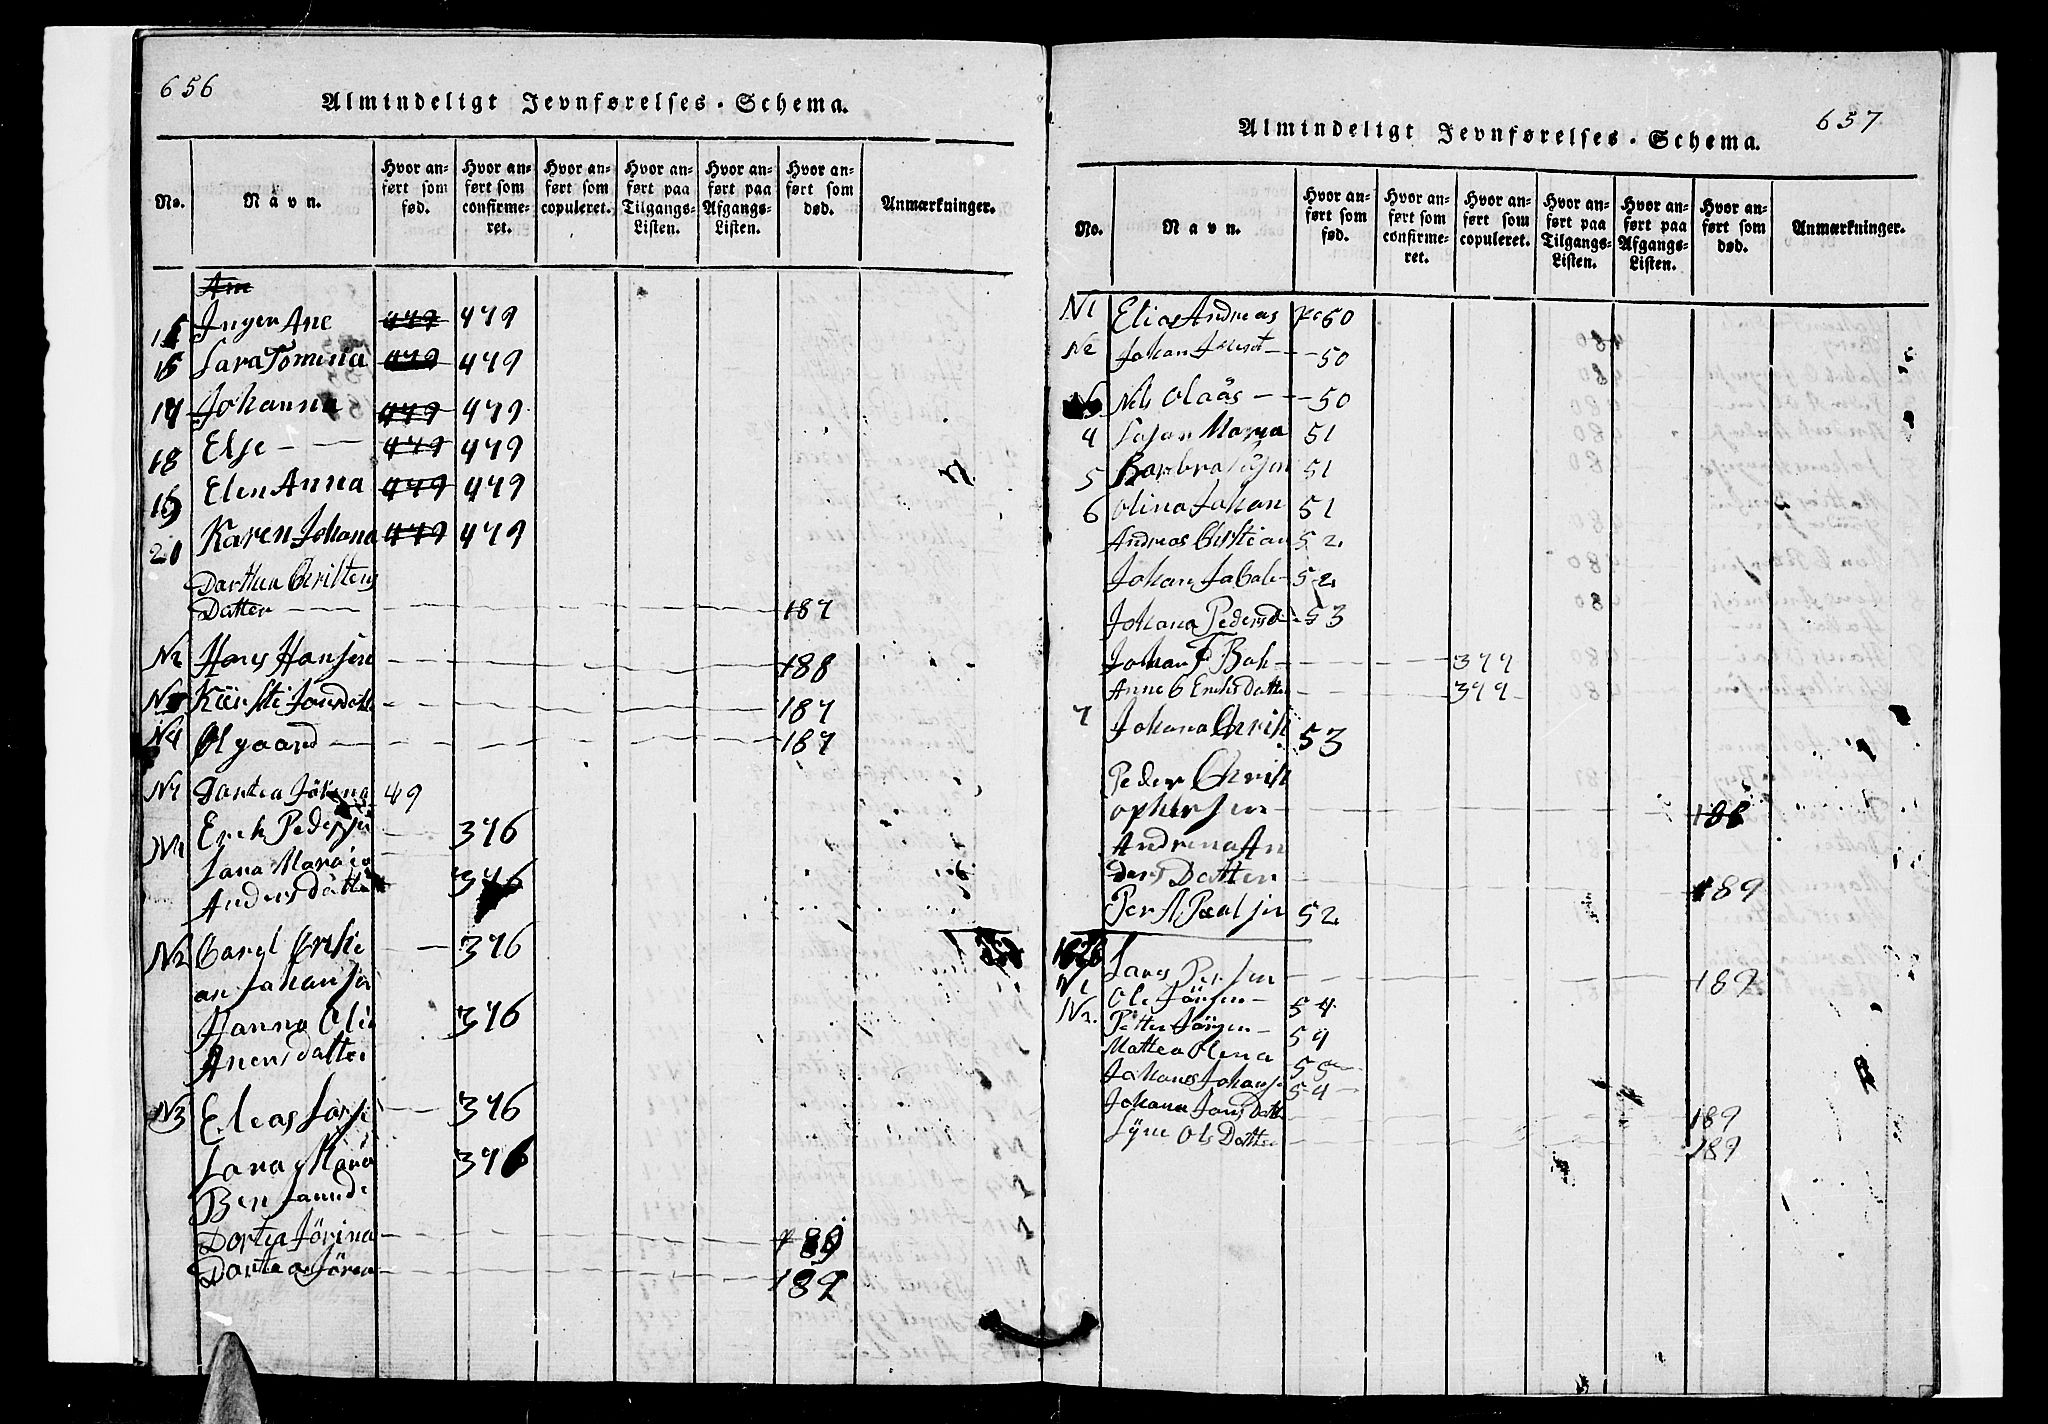 656
Almindeligt Jevnførelses-Schema.
No. Navn. Hvor anført som fød. Hvor anført som confirmeret. Hvor anført som copuleret. Hvor anført paa Tilgangs-Listen. Hvor anført paa Afgangs-Listen. Hvor anført som død. Anmærkninger.
Inger Ane 479 479
Lara Tomina 479 479
Johanna 479 479
18 Else 479 479
19 Elen Anna 479 479
20 Karen Johana 479 479
Darthea Christens
Datter 187
N2 Hans Hansen 188
Kiersti Jonsdatt 187
N4 Olgaard 187
N1 Dortea Jörina 49
N1 Erik Pedersen 376
Lana Maria
Andersdatter 376
N2 Carel Cristi
an Johansen 376
Hanna Oli 376
Anersdatter
N3 Eleas Larse 376
Lana Maria 376
Ben
Dortea Jörina 189
Dortea Jören 189
657
Almindeligt Jevnførelses-Schema.
No. Navn. Hvor anført som fød. Hvor anført som confirmeret. Hvor anført som copuleret. Hvor anført paa Tilgangs-Listen. Hvor anført paa Afgangs-Listen. Hvor anført som død. Anmærkninger.
N1 Elias Andreas 50
N2 Johan 50
Nels Olaäs 50
4 Maria 51
5 Barbra 51
6 Olina Johan 51
Andreas Christian 52
Johan Jacob 52
Johana Pedersd 53
Johan F Bak 377
Anne Eriksdatter 377
7 Johana Chrisk 53
Peder Christ
ophersen 188
Andrina An
ders Datter 189
Per A Paalsen 52
1826
N1 Lars Persen 189
N2 Ole Jörgen 54
Petter Jörgen 54
Mattea Olena 55
Johanes Johans 54
Johana Jonsdatt 189
Olsdatter 189